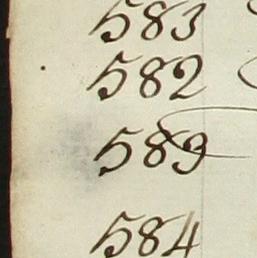 583
582
583
584